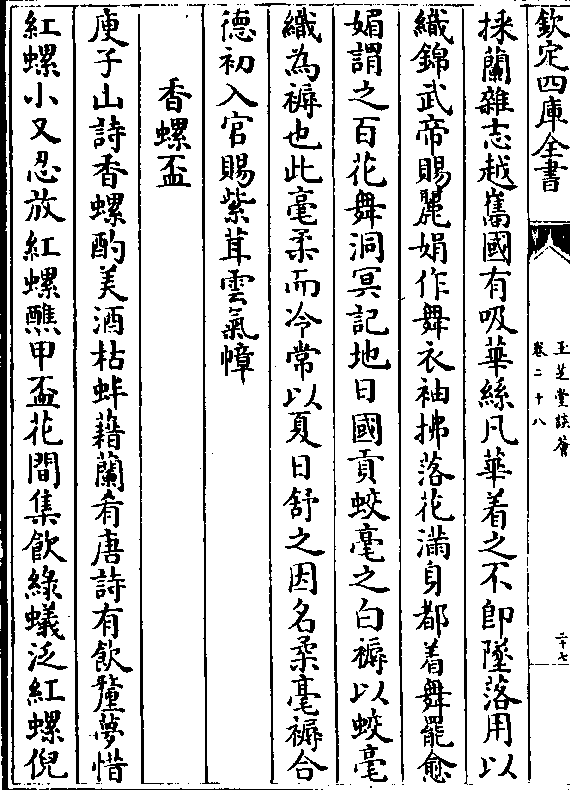 欽定四庫全書
玉芝堂談薈
卷二十八
二十七
採蘭雜志越嶲國有吸華絲凡華着之不即墜落用以
織錦武帝賜麗娟作舞衣袖拂落花滿身都着舞罷愈
媚謂之百花舞洞冥記地日國貢蛟毫之白褥以蛟毫
織為褥也此毫柔而冷常以夏日舒之因名柔毫褥合
德初入官賜紫茸雲氣幛
香螺盃
庾子山詩香螺酌美酒枯蚌藉蘭肴唐詩有飲釐夢惜
紅螺小又忍放紅螺醮甲盃花間集飲綠蟻泛紅螺倪